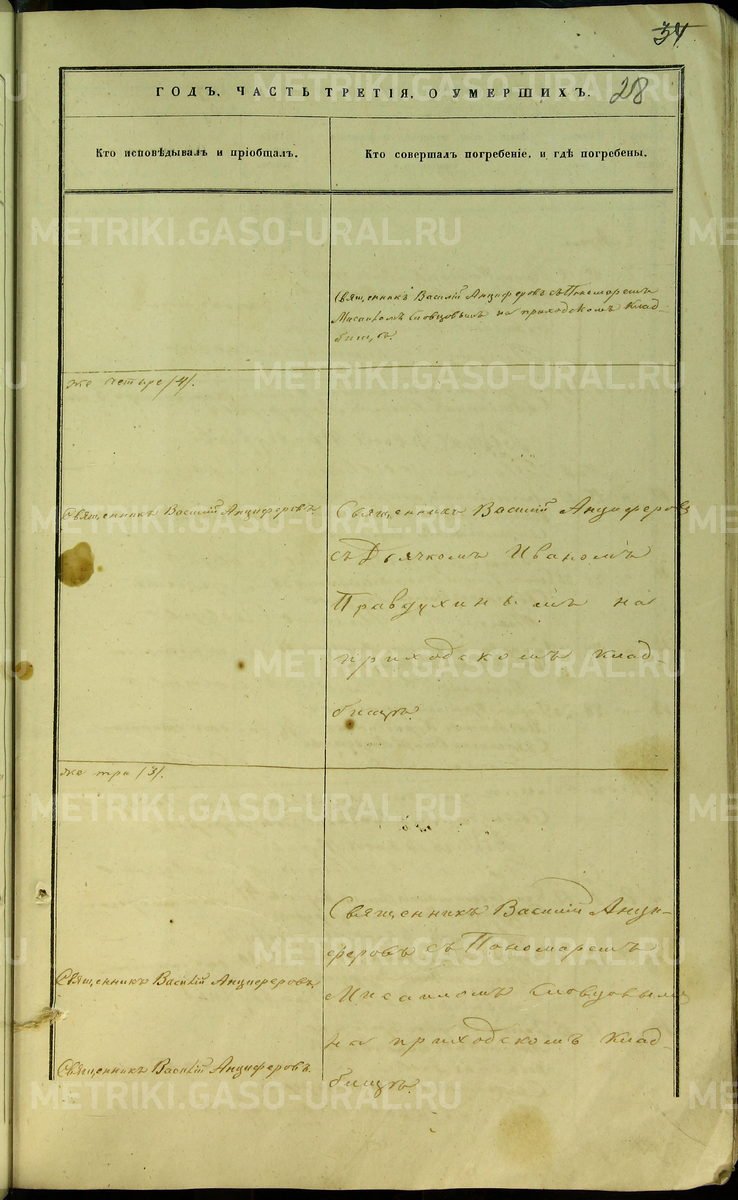 34
28
ГОДЪ, ЧАСТЬ ТРЕТІЯ, О УМЕРШИХЪ.
Кто исповѣдывалъ и пріобщалъ.
Кто совершалъ погребеніе, и гдѣ погребены.
Священникъ Василій Анциферовъ съ Пономаремъ
Мисаиломъ Словцовымъ на приходскомъ клад-
бищѣ.
же четыре /4/.
Священникъ Василій Анциферовъ.
Священникъ Василій Анциферовъ
съ Дьячкомъ Иваномъ
Правдухинымъ на
приходскомъ клад-
бищѣ.
же три /3/.
Священникъ Василій Анци-
феровъ съ Пономаремъ
Мисаиломъ Словцовымъ
на приходскомъ клад-
бищѣ.
Священникъ Василій Анциферовъ.
Священникъ Василій Анциферовъ.
METRIKI.GASO-URAL.RU